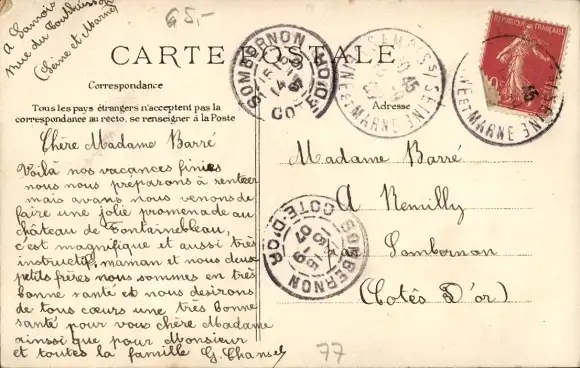 A Samois
rue du
(Seine et Marne)
65,-
CARTE POSTALE
Correspondance
Tous les pays étrangers n'acceptent pas la
correspondance au recto, se renseigner à la Poste
Adresse
Chère Madame Barré
Voilà nos vacances finies
nous nous preparons à rentrer
mais avant nous venons de
faire une jolie promenade au
château de Fontainebleau,
c'est magnifique et aussi très
instructif, maman et nous deux
petits frères nous sommes en très
bonne santé et nous desirons
de tous cœurs une très bonne
santé pour vous chère Madame
ainssi que pour Monsieur
et toutes la famille G. Chansel
Madame Barré
A Remilly
par Sombernon
(Côtés D'or)
SOMBERNON
COTE D'OR
SOMBERNON
COTE D'OR
15-9
07
SEINE ET MARNE
SEINE ET MARNE
REPUBLIQUE FRANÇAISE
77